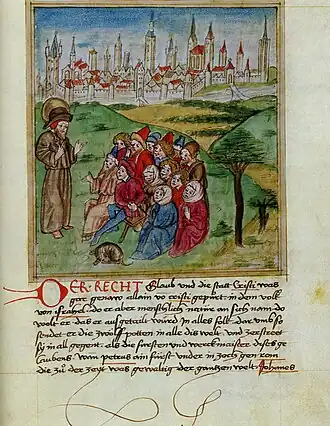 DER RECHT Glaub und die statt Cristi was
gar genaw allain vō cristi gepurt in dem volk
von israhel do er aber menschlich natur an sich nam do
wolt er das er außgetailt würd in alles folk Dar umb so
sendet er die zwölf potten in alle dis welt und zerstreet
sy in all gegent als die fürsten und werckmaister diß ge
laubens wan petrus ain fürst under in zoch gen rom
die zů der zeyt was gewaltig der gantzen welt Johānes